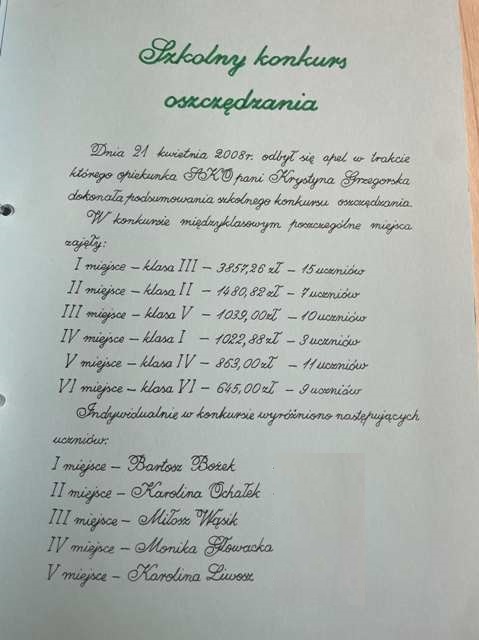 Szkolny konkurs
oszczędzania
Dnia 21 kwietnia 2008r. odbył się apel w trakcie
którego opiekunka SKO pani Krystyna Grzegorska
dokonała podsumowania szkolnego konkursu oszczędzania.
W konkursie międzyklasowym poszczególne miejsca
zajęły:
I miejsce – klasa III – 3857,26 zł – 15 uczniów
II miejsce – klasa II – 1480,82 zł – 7 uczniów
III miejsce – klasa V – 1039,00zł – 10 uczniów
IV miejsce – klasa I – 1022,88 zł – 3 uczniów
V miejsce – klasa IV – 863,00zł – 11 uczniów
VI miejsce – klasa VI – 645,00zł – 9 uczniów
Indywidualnie w konkursie wyróżniono następujących
uczniów:
I miejsce – Bartosz Bożek
II miejsce – Karolina Ochałek
III miejsce – Miłosz Wąsik
IV miejsce – Monika Głowacka
V miejsce – Karolina Liwosz